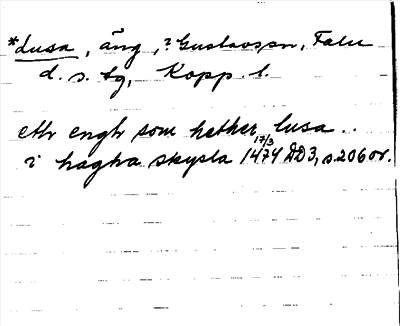 *Lusa, äng, ? Gustavsson, Falu
d. s. tg, Kopp. l.
eth engh som hether lusa ..
i hagha skysla 17/3 1474 DD3, s. 206 or.